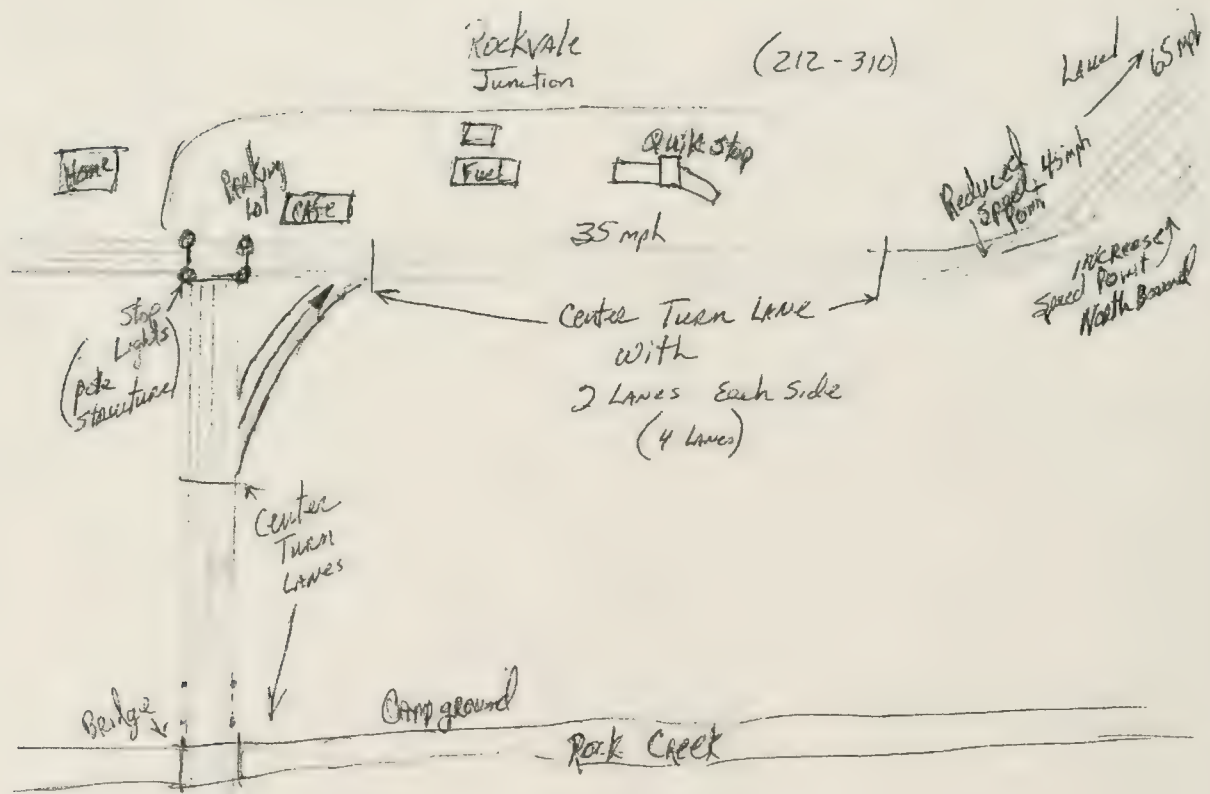 Rockvale
Junction
(212-310)
Laurel
65 mph
Home
Parking
Lot
Cafe
Fuel
Quik Stop
35 mph
Reduced
Speed
Point
45 mph
Increase
Speed Point
North Bound
Stop
Lights
(pole
structure)
Center Turn Lane
with
2 Lanes Each Side
(4 Lanes)
Center
Turn
Lanes
Bridge
Campground
Rock Creek